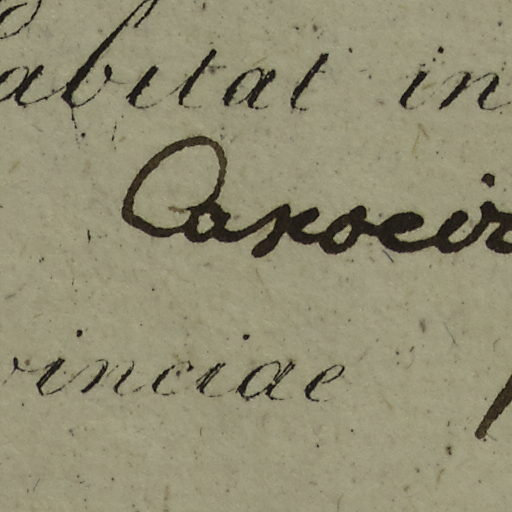 abitat in
Caxoeir
vinciae